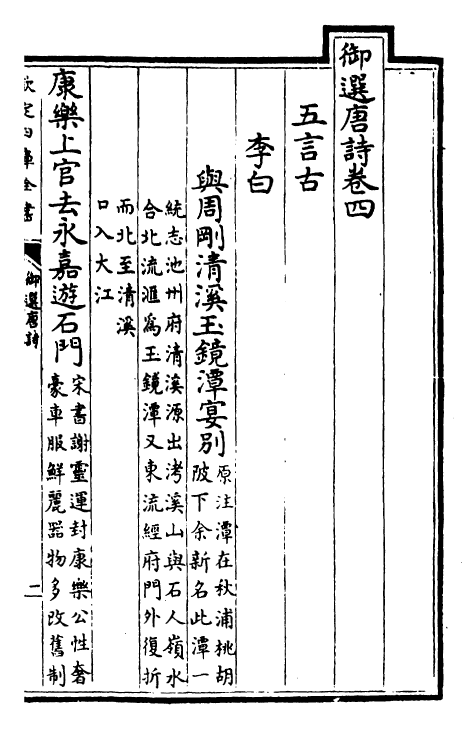 御選唐詩卷四
五言古
李白
與周剛清溪玉鏡潭宴別原注潭在秋浦桃胡
陂下余新名此潭一
統志池州府清溪源出洘溪山與石人嶺水
合北流滙為玉鏡潭又東流經府門外復折
而北至清溪
口入大江
康樂上官去永嘉遊石門宋書謝靈運封康樂公性奢
豪車服鮮麗器物多改舊制
欽定四庫全書
御選唐詩
二